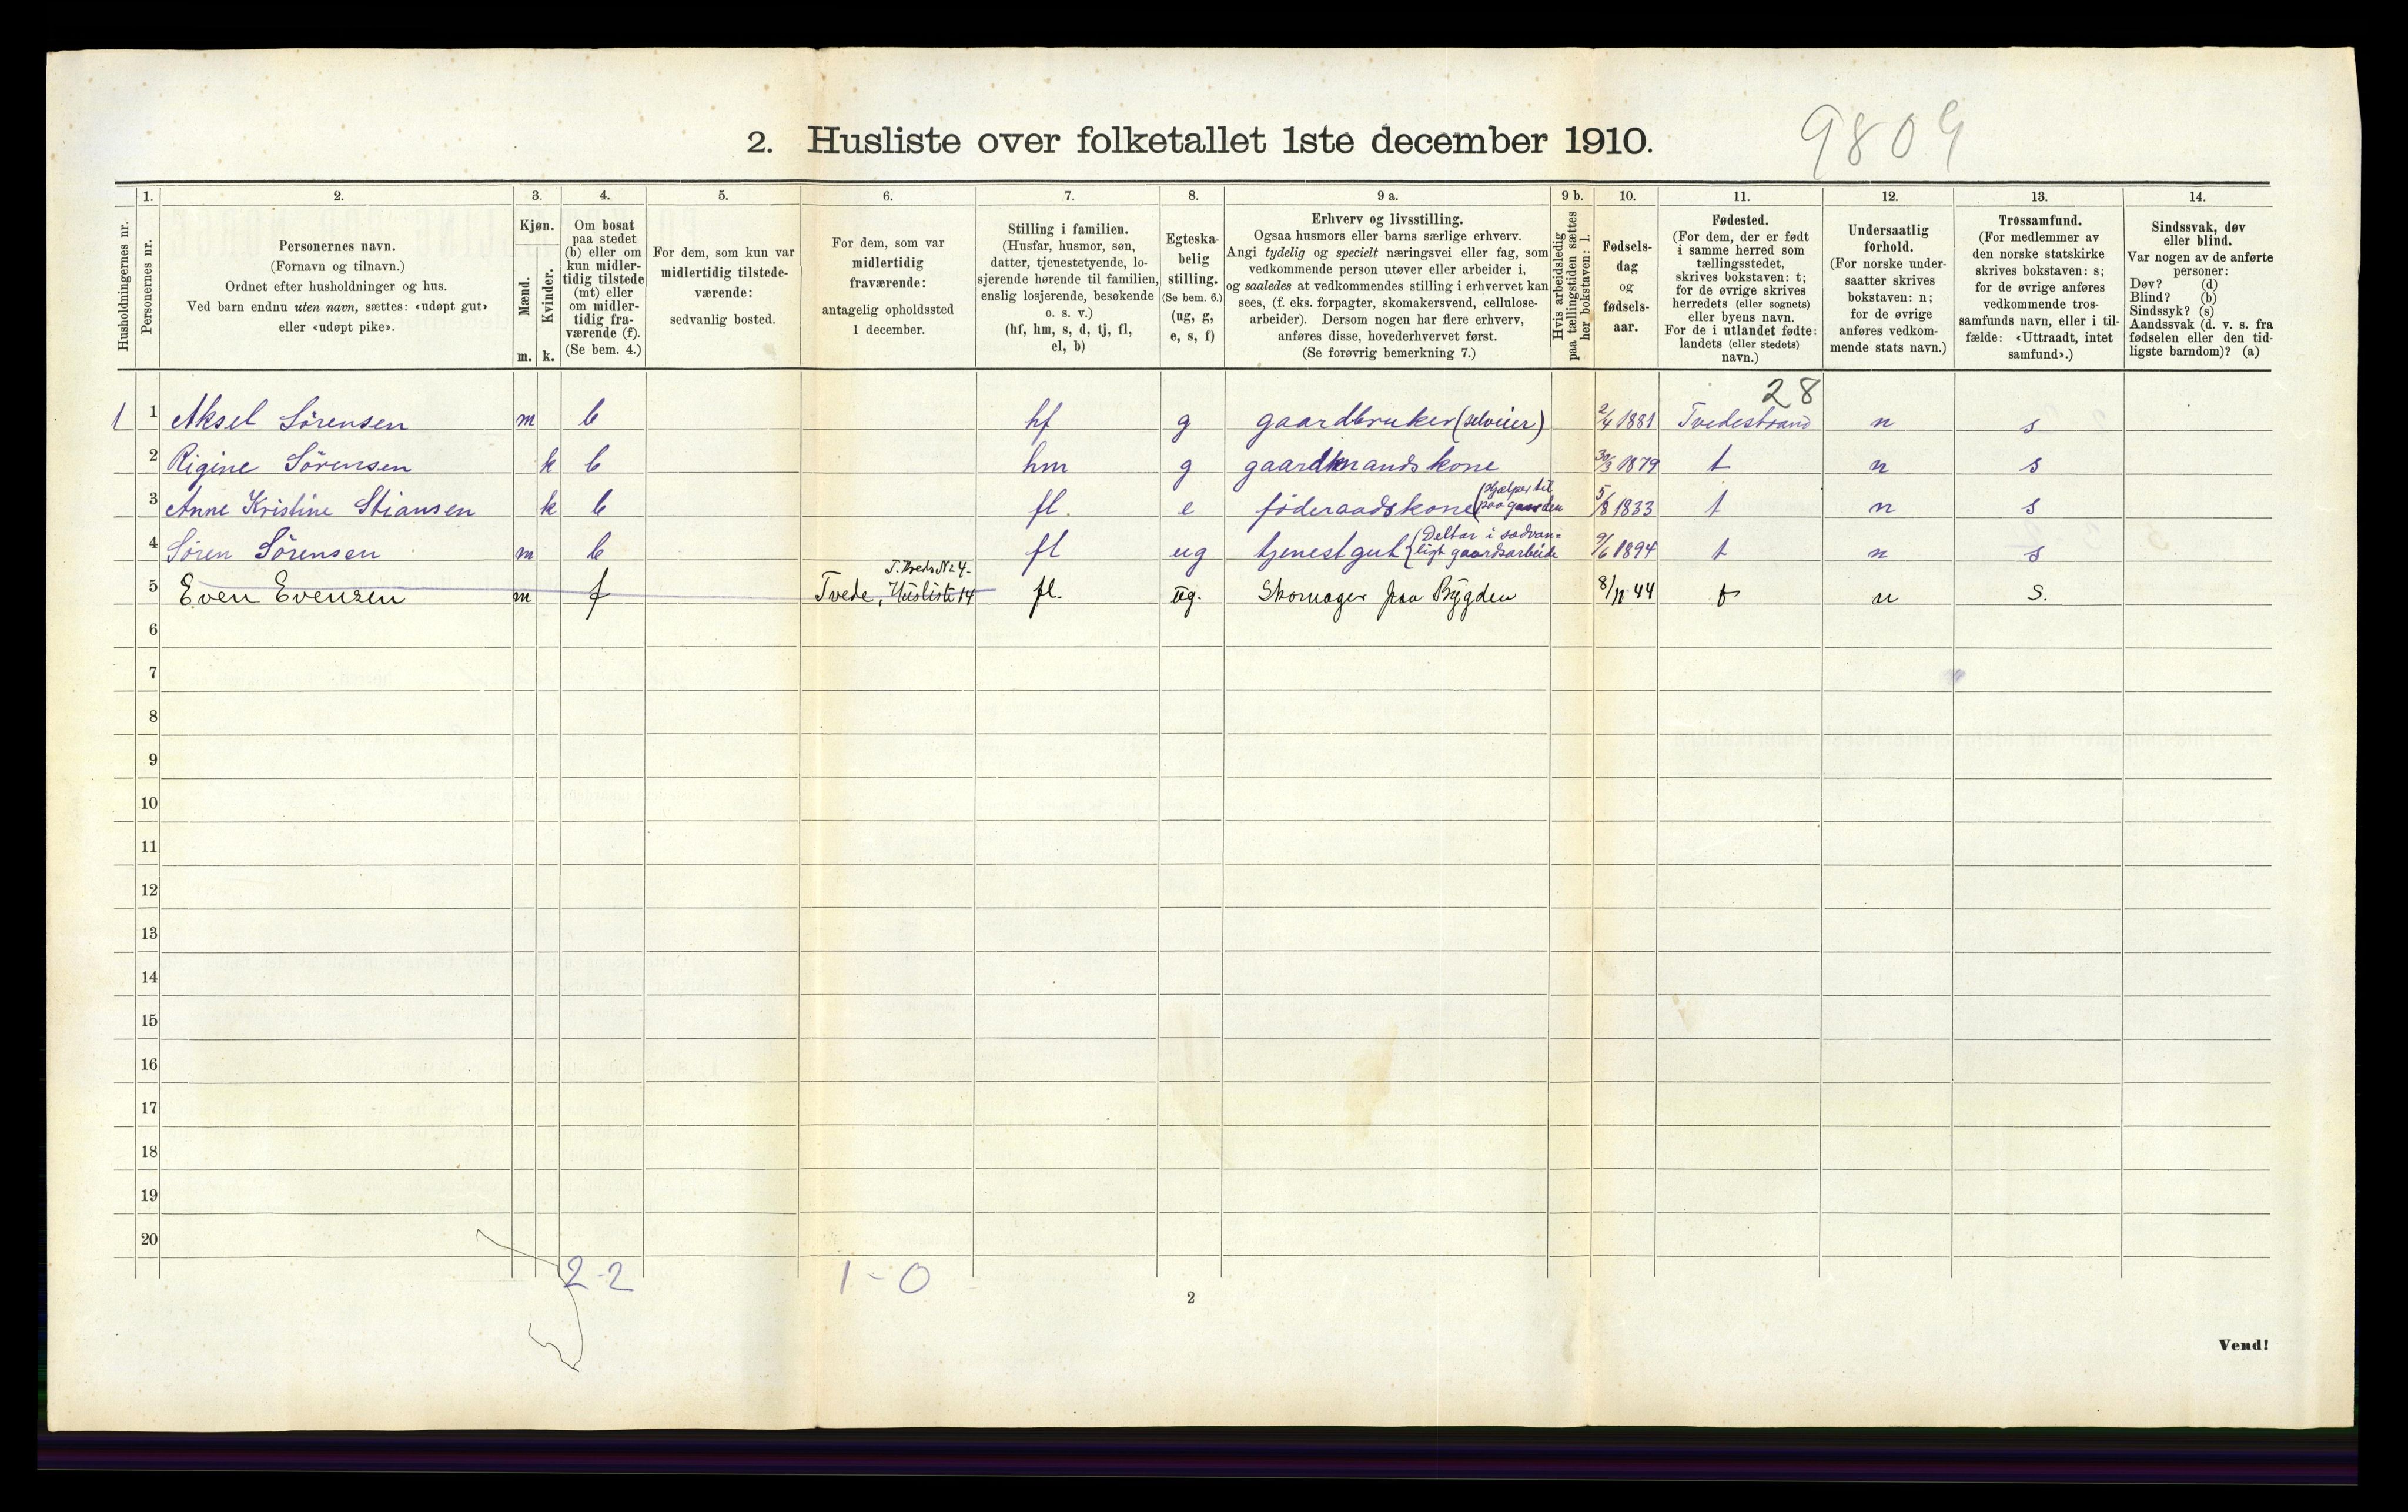 2. Husliste over folketallet 1ste december 1910.
9809
Husholdningernes nr.
1.
Personernes nr.
2.
Personernes navn.
(Fornavn og tilnavn.)
Ordnet efter husholdninger og hus.
Ved barn endnu uten navn, sættes: «udøpt gut»
eller «udøpt pike».
3.
Kjøn.
Mænd.
Kvinder.
m. k.
4.
Om bosat
paa stedet
(b) eller om
kun midler-
tidig tilstede
(mt) eller
om midler-
tidig fra-
værende (f).
(Se bem. 4.)
5.
For dem, som kun var
midlertidig tilstede-
værende:
sedvanlig bosted.
6.
For dem, som var
midlertidig
fraværende:
antagelig opholdssted
1 december.
7.
Stilling i familien.
(Husfar, husmor, søn,
datter, tjenestetyende, lo-
sjerende hørende til familien,
enslig losjerende, besøkende
o. s. v.)
(hf, hm, s, d, tj, fl,
el, b)
8.
Egteska-
belig
stilling.
(Se bem. 6.)
(ug, g,
e, s, f)
9 a.
Erhverv og livsstilling.
Ogsaa husmors eller barns særlige erhverv.
Angi tydelig og specielt næringsvei eller fag, som
vedkommende person utøver eller arbeider i,
og saaledes at vedkommendes stilling i erhvervet kan
sees, (f. eks. forpagter, skomakersvend, cellulose-
arbeider). Dersom nogen har flere erhverv,
anføres disse, hovederhvervet først.
(Se forøvrig bemerkning 7.)
9 b.
Hvis arbeidsledig
paa tællingstiden sættes
her bokstaven: l.
10.
Fødsels-
dag
og
fødsels-
aar.
11.
Fødested.
(For dem, der er født
i samme herred som
tællingsstedet,
skrives bokstaven: t;
for de øvrige skrives
herredets (eller sognets)
eller byens navn.
For de i utlandet fødte:
landets (eller stedets)
navn.)
12.
Undersaatlig
forhold.
(For norske under-
saatter skrives
bokstaven: n;
for de øvrige
anføres vedkom-
mende stats navn.)
13.
Trossamfund.
(For medlemmer av
den norske statskirke
skrives bokstaven: s;
for de øvrige anføres
vedkommende tros-
samfunds navn, eller i til-
fælde: «Uttraadt, intet
samfund».)
14.
Sindssvak, døv
eller blind.
Var nogen av de anførte
personer:
Døv? (d)
Blind? (b)
Sindssyk? (s)
Aandssvak (d. v. s. fra
fødselen eller den tid-
ligste barndom)? (a)
28
1 1 Aksel Sörensen m b hf g gaardbruker (selveier) 2/4 1881 Tvedestrand n s
2 Rigine Sörensen k b hm g gaardmandskone 30/3 1879 t n s
3 Anne Kristine Stiansen k b fl. e föderaadskone (hjælper til paa gaarden 5/8 1833 t n s
4 Sören Sörensen m b fl ug tjenestgut (Deltar i sedvan= ligt gaardsarbeide 9/6 1894 t n s
T. Kreds N24.
5 Even Evensen m f Tvede, Husliste 14 fl. ug. Skomager paa Bygden 8/11 44 t n s.
6
7
8
9
10
11
12
13
14
15
16
17
18
19
20
2-2
1-0
2
Vend!